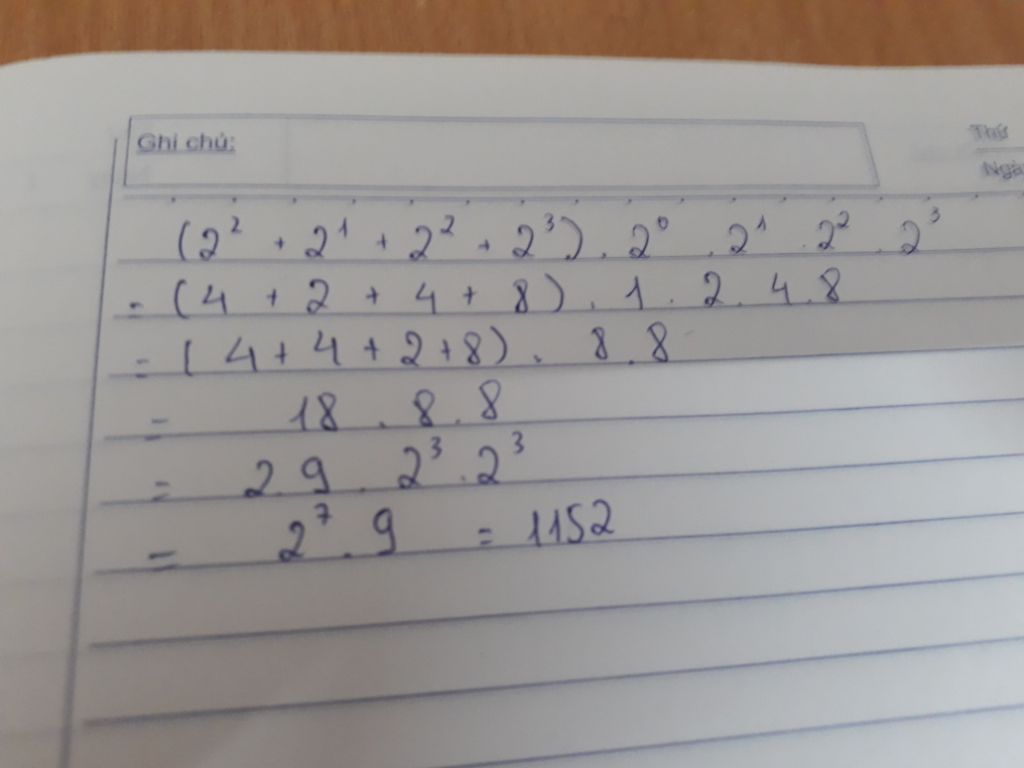 Ghi chú:
Thứ
Ngà
(2² + 2¹ + 2² + 2³) . 2⁰ . 2¹ . 2² . 2³
= (4 + 2 + 4 + 8) . 1 . 2 . 4 . 8
= (4 + 4 + 2 + 8) . 8 . 8
= 18 . 8 . 8
= 2 . 9 . 2³ . 2³
= 2⁷ . 9 = 1152